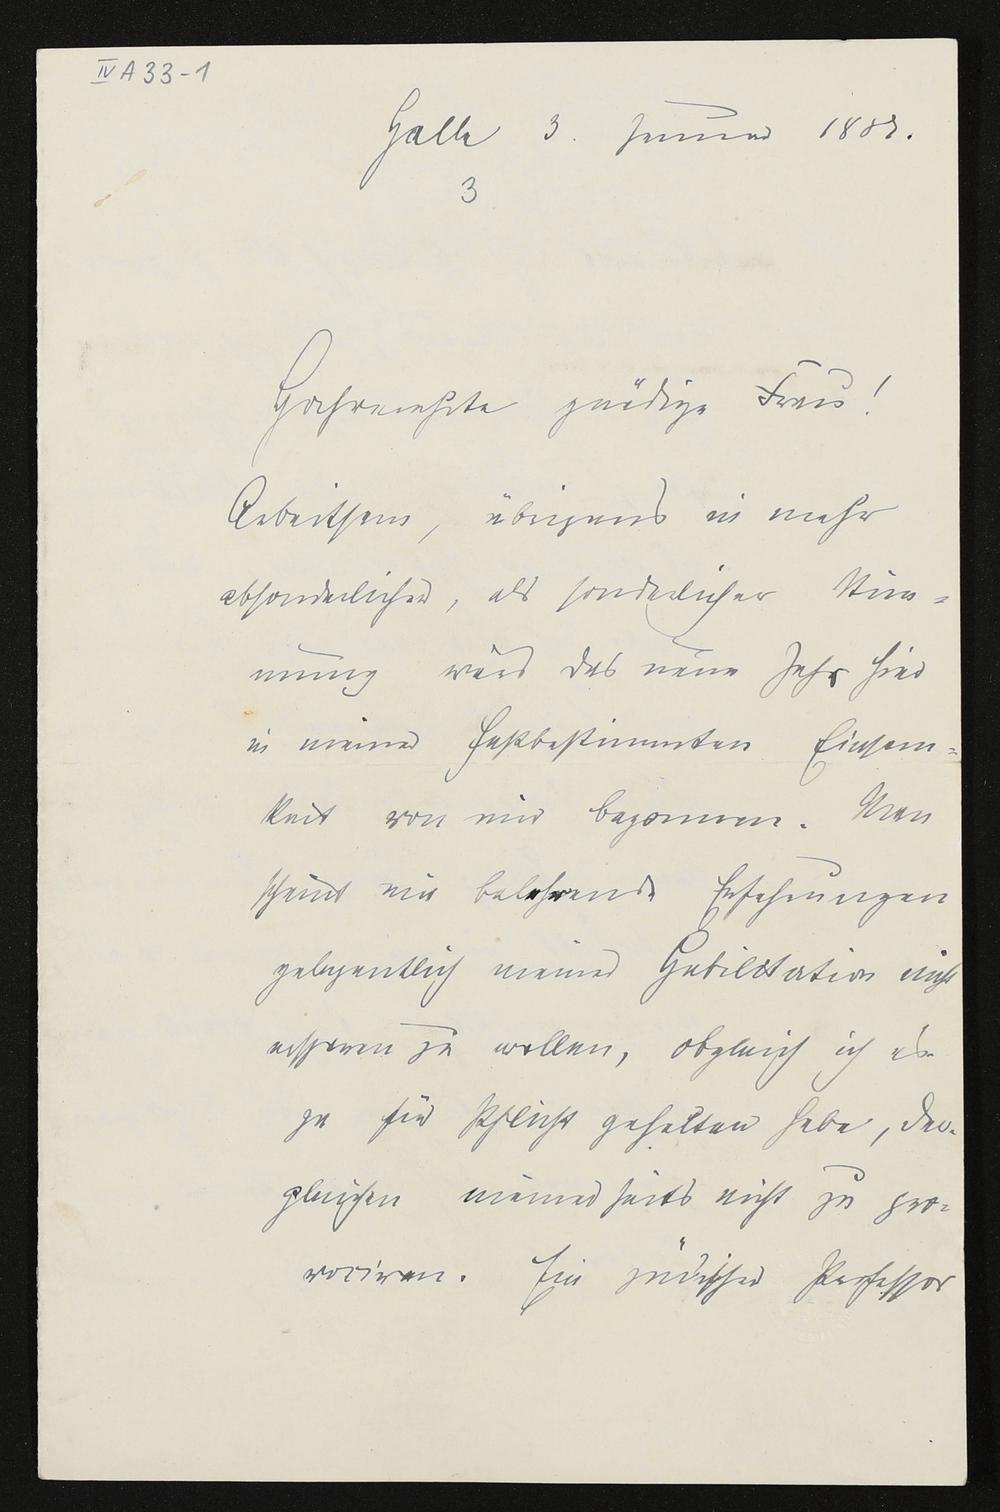 IV A 33-1
Halle 3. Januar 188
3
Hochverehrte gnädige Frau!
Arbeitsam, übrigens in mehr
absonderlicher, als sonderlicher Stim=
mung ward das neue Jahr hier
in meiner selbstbestimmten Einsam=
keit von mir begonnen. Man
scheint mir belehrende Erfahrungen
gelegentlich meiner Habilitation nicht
ersparen zu wollen, obgleich ich es
ja für Pflicht gehalten habe, der=
gleichen meinerseits nicht zu pro=
vociren. Ein jüdischer Professor